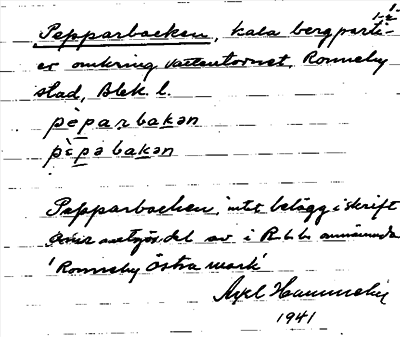 Pepparbacken, kala bergparti-
er omkring vattentornet, Ronneby
stad, Blek. l.
pèparbakən
pèpabakən
Pepparbacken, inte belägg i skrift
utgör del av i R.b.b. omnämnda
'Ronneby Östra mark'
Axel
1941